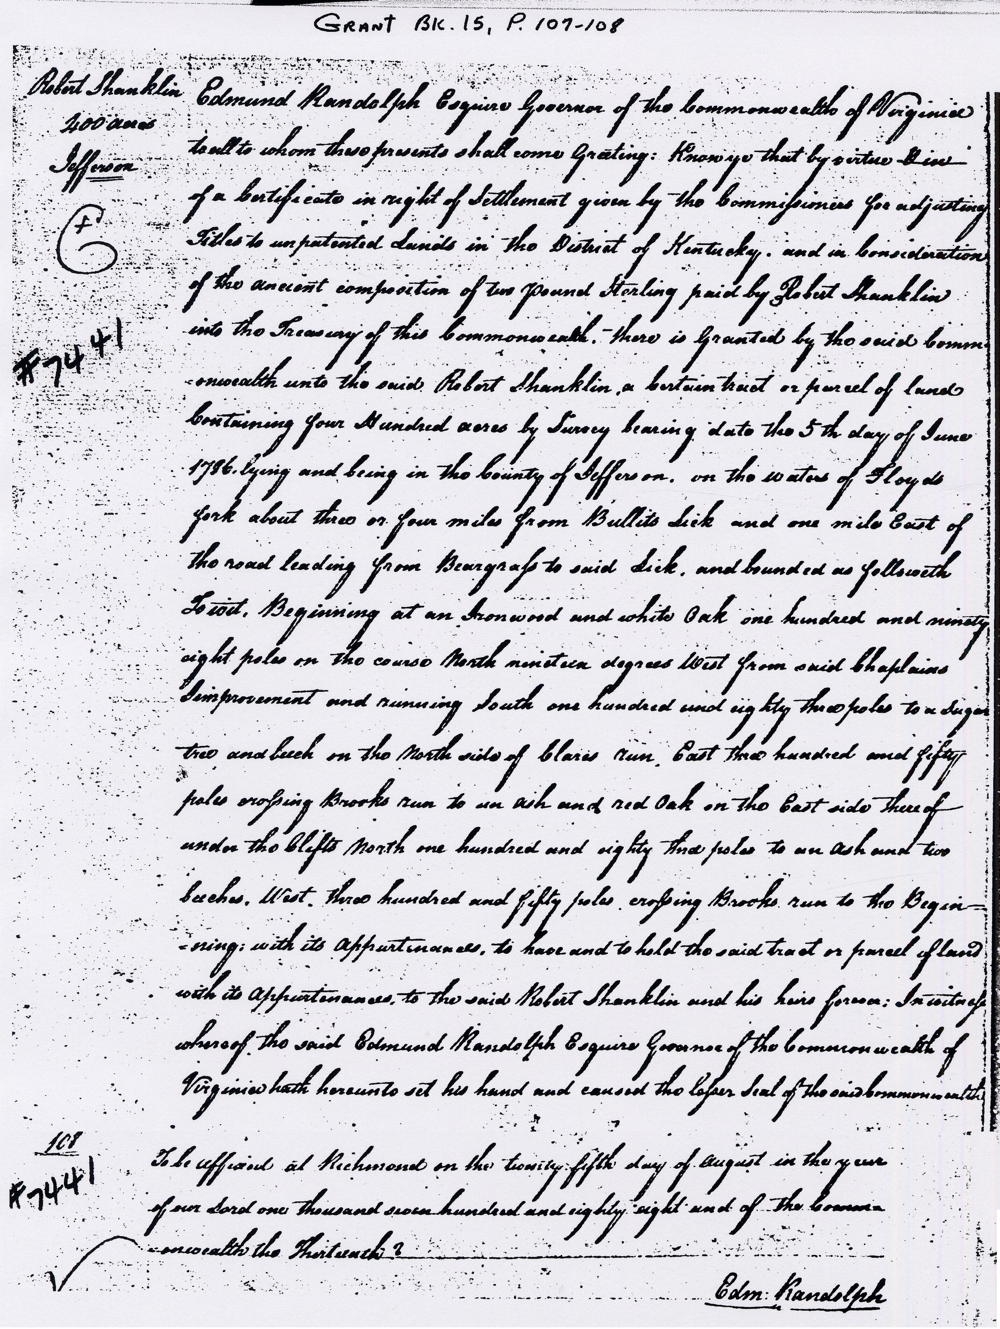 GRANT BK. 15, P. 107-108
Robert Shanklin
400 acres
Jefferson
#7441
Edmund Randolph Esquire Governor of the Commonwealth of Virginia
to all to whom these presents shall come Greeting: Know ye that by virtue
of a Certificate in right of Settlement given by the Commissioners for adjusting
Titles to unpatented Lands in the District of Kentucky. and in Consideration
of the ancient composition of two Pound Sterling paid by Robert Shanklin
into the Treasury of this Commonwealth. there is Granted by the said Comm-
-onwealth unto the said Robert Shanklin, a Certain tract or parcel of land
Containing four Hundred acres by Survey bearing date the 5th day of June
1786. lying and being in the County of Jefferson. on the waters of Floyds
fork about three or four miles from Bullits Lick and one mile East of
the road leading from Beargrass to said Lick. and bounded as followeth
Towit. Beginning at an Ironwood and white Oak one hundred and ninety
eight poles on the course North nineteen degrees West from said Chaplains
Improvement and running South one hundred and eighty three poles to a Sugar
tree and beech on the North side of Clares run. East three hundred and fifty
poles crossing Brooks run to an ash and red Oak on the East side thereof
under the Clifts North one hundred and eighty three poles to an Ash and two
beeches. West. three hundred and fifty poles crossing Brooks run to the Begin=
=ning: with its Appurtenances. to have and to hold the said tract or parcel of land
with its Appurtenances, to the said Robert Shanklin and his heirs forever: In witness
whereof. the said Edmund Randolph Esquire Governor of the Commonwealth of
Virginia hath hereunto set his hand and caused the lesser Seal of the said Commonwealth
108
#7441
To be affixed at Richmond on the twenty fifth day of August in the year
of our Lord one thousand seven hundred and eighty eight and of the Comm=
=onwealth the Thirteenth
Edm: Randolph